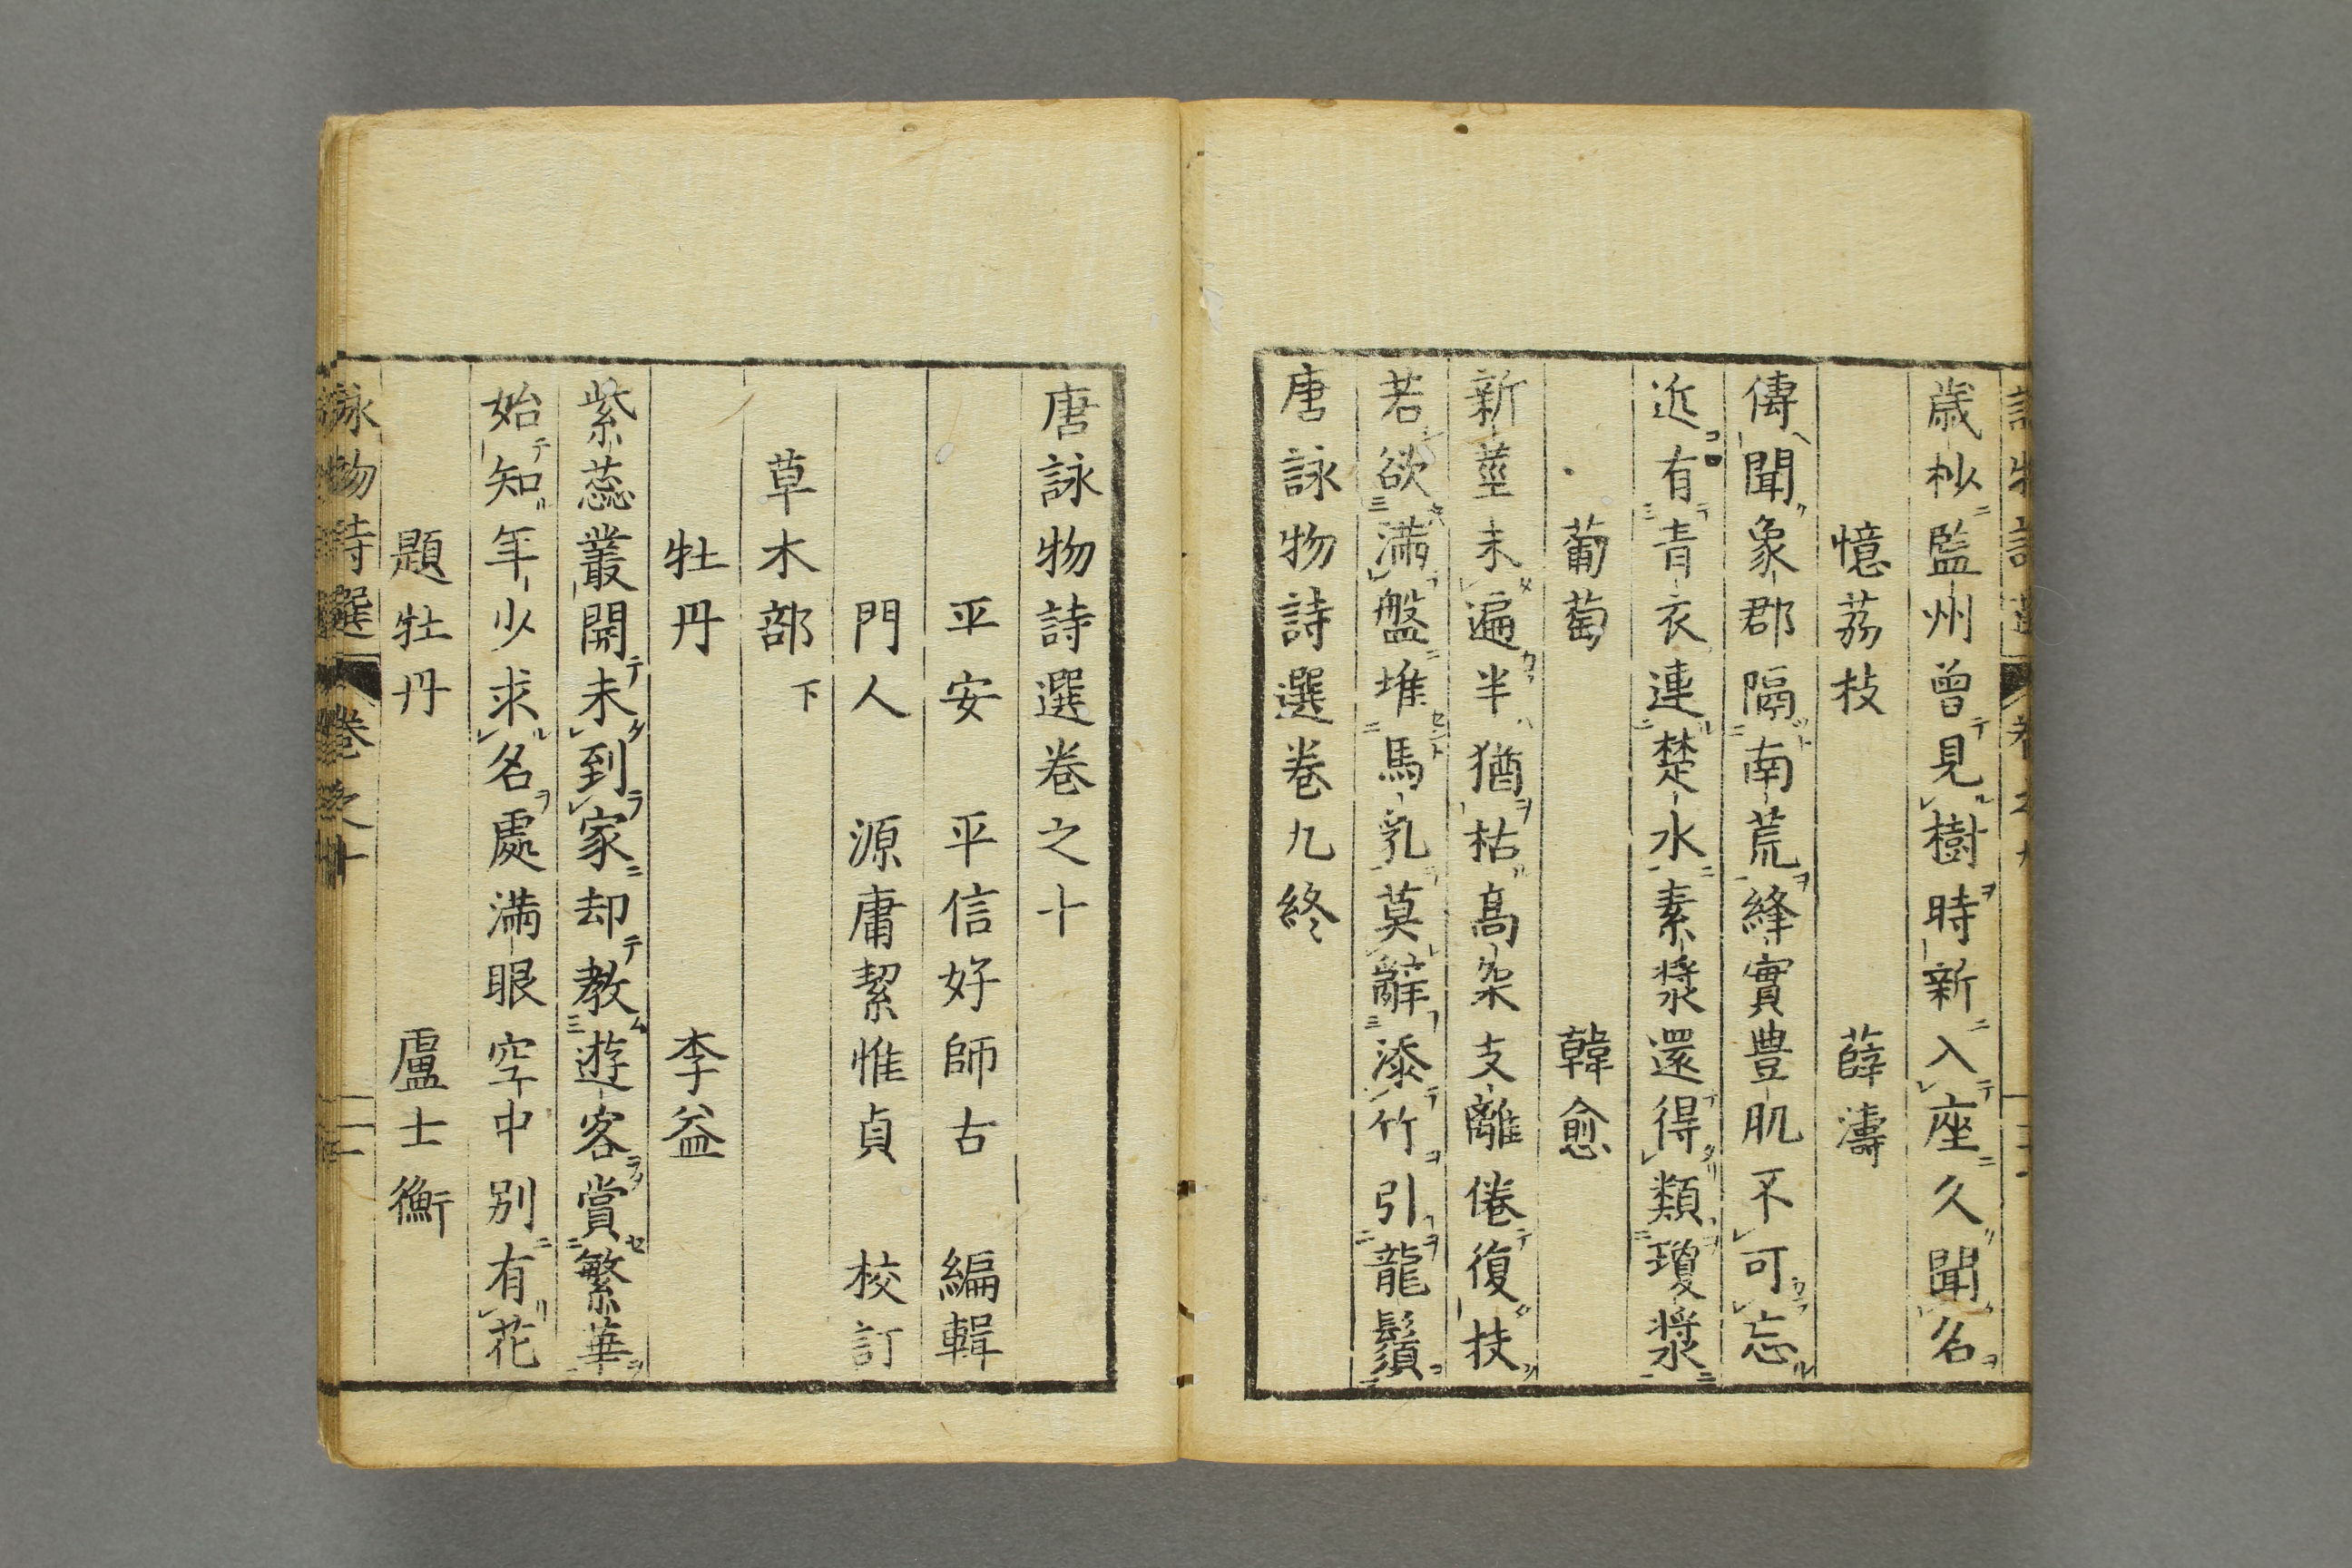 歳杪監州曾見樹時新入座久聞名
憶荔枝 薛濤
傳聞象郡隔南荒絳實豊肌不可忘
近有青衣連楚水素漿還得類瓊漿
葡萄 韓愈
新莖未遍半猶枯高架支離倦復扶
若欲滿盤堆馬乳莫辭添竹引龍鬚
唐詠物詩選卷九終
唐詠物詩選卷之十
平安 平信好師古 編輯
門人 源庸絜惟貞 校訂
草木部 下
牡丹 李益
紫蕊叢開未到家却教遊客賞繁華
始知年少求名處滿眼空中別有花
題牡丹 盧士衡
詠物詩選 卷之十